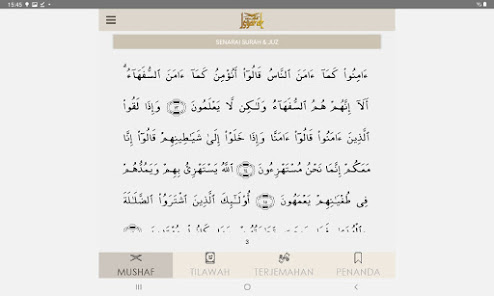 15:45
SENARAI SURAH & JUZ
ءَامِنُوا۟ كَمَآ ءَامَنَ ٱلنَّاسُ قَالُوٓا۟ أَنُؤْمِنُ كَمَآ ءَامَنَ ٱلسُّفَهَآءُ ۗ
أَلَآ إِنَّهُمْ هُمُ ٱلسُّفَهَآءُ وَلَٰكِن لَّا يَعْلَمُونَ ١٣ وَإِذَا لَقُوا۟
ٱلَّذِينَ ءَامَنُوا۟ قَالُوٓا۟ ءَامَنَّا وَإِذَا خَلَوْا۟ إِلَىٰ شَيَٰطِينِهِمْ قَالُوٓا۟ إِنَّا
مَعَكُمْ إِنَّمَا نَحْنُ مُسْتَهْزِءُونَ ١٤ ٱللَّهُ يَسْتَهْزِئُ بِهِمْ وَيَمُدُّهُمْ
فِى طُغْيَٰنِهِمْ يَعْمَهُونَ ١٥ أُو۟لَٰٓئِكَ ٱلَّذِينَ ٱشْتَرَوُا۟ ٱلضَّلَٰلَةَ
3
MUSHAF
TILAWAH
TERJEMAHAN
PENANDA